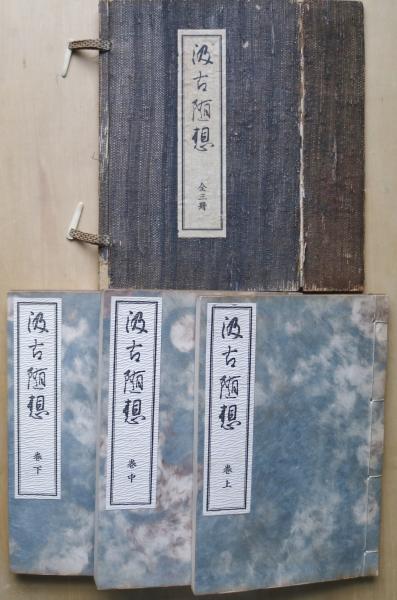 汲古随想
全三冊
汲古随想
巻上
汲古随想
巻中
汲古随想
巻下